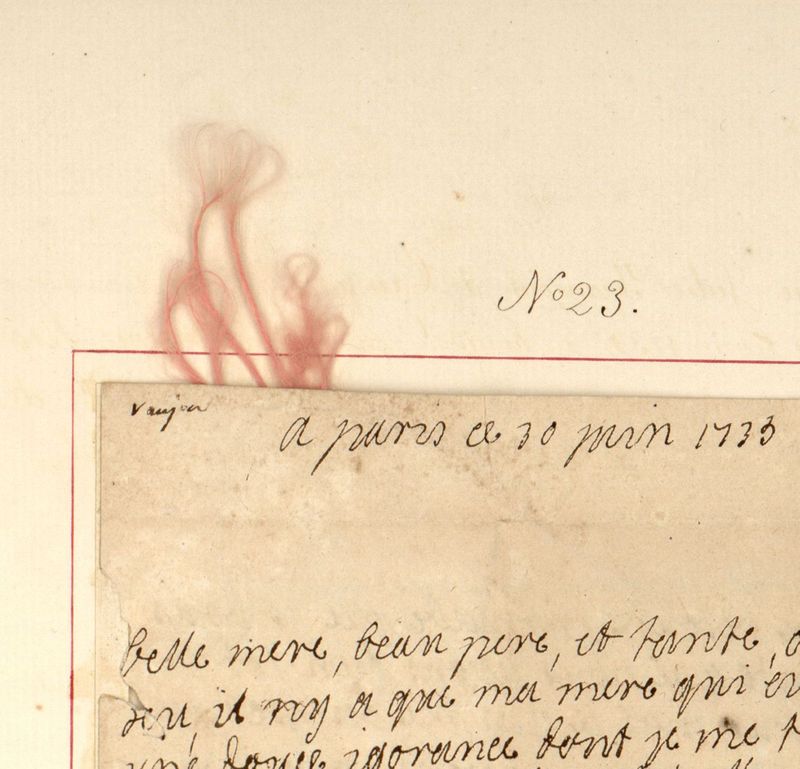 No 23.
vaujour
a paris ce 30 juin 1733
belle mere, beau pere, et tante,
il ny a que ma mere qui
une douce ignorance dont je me